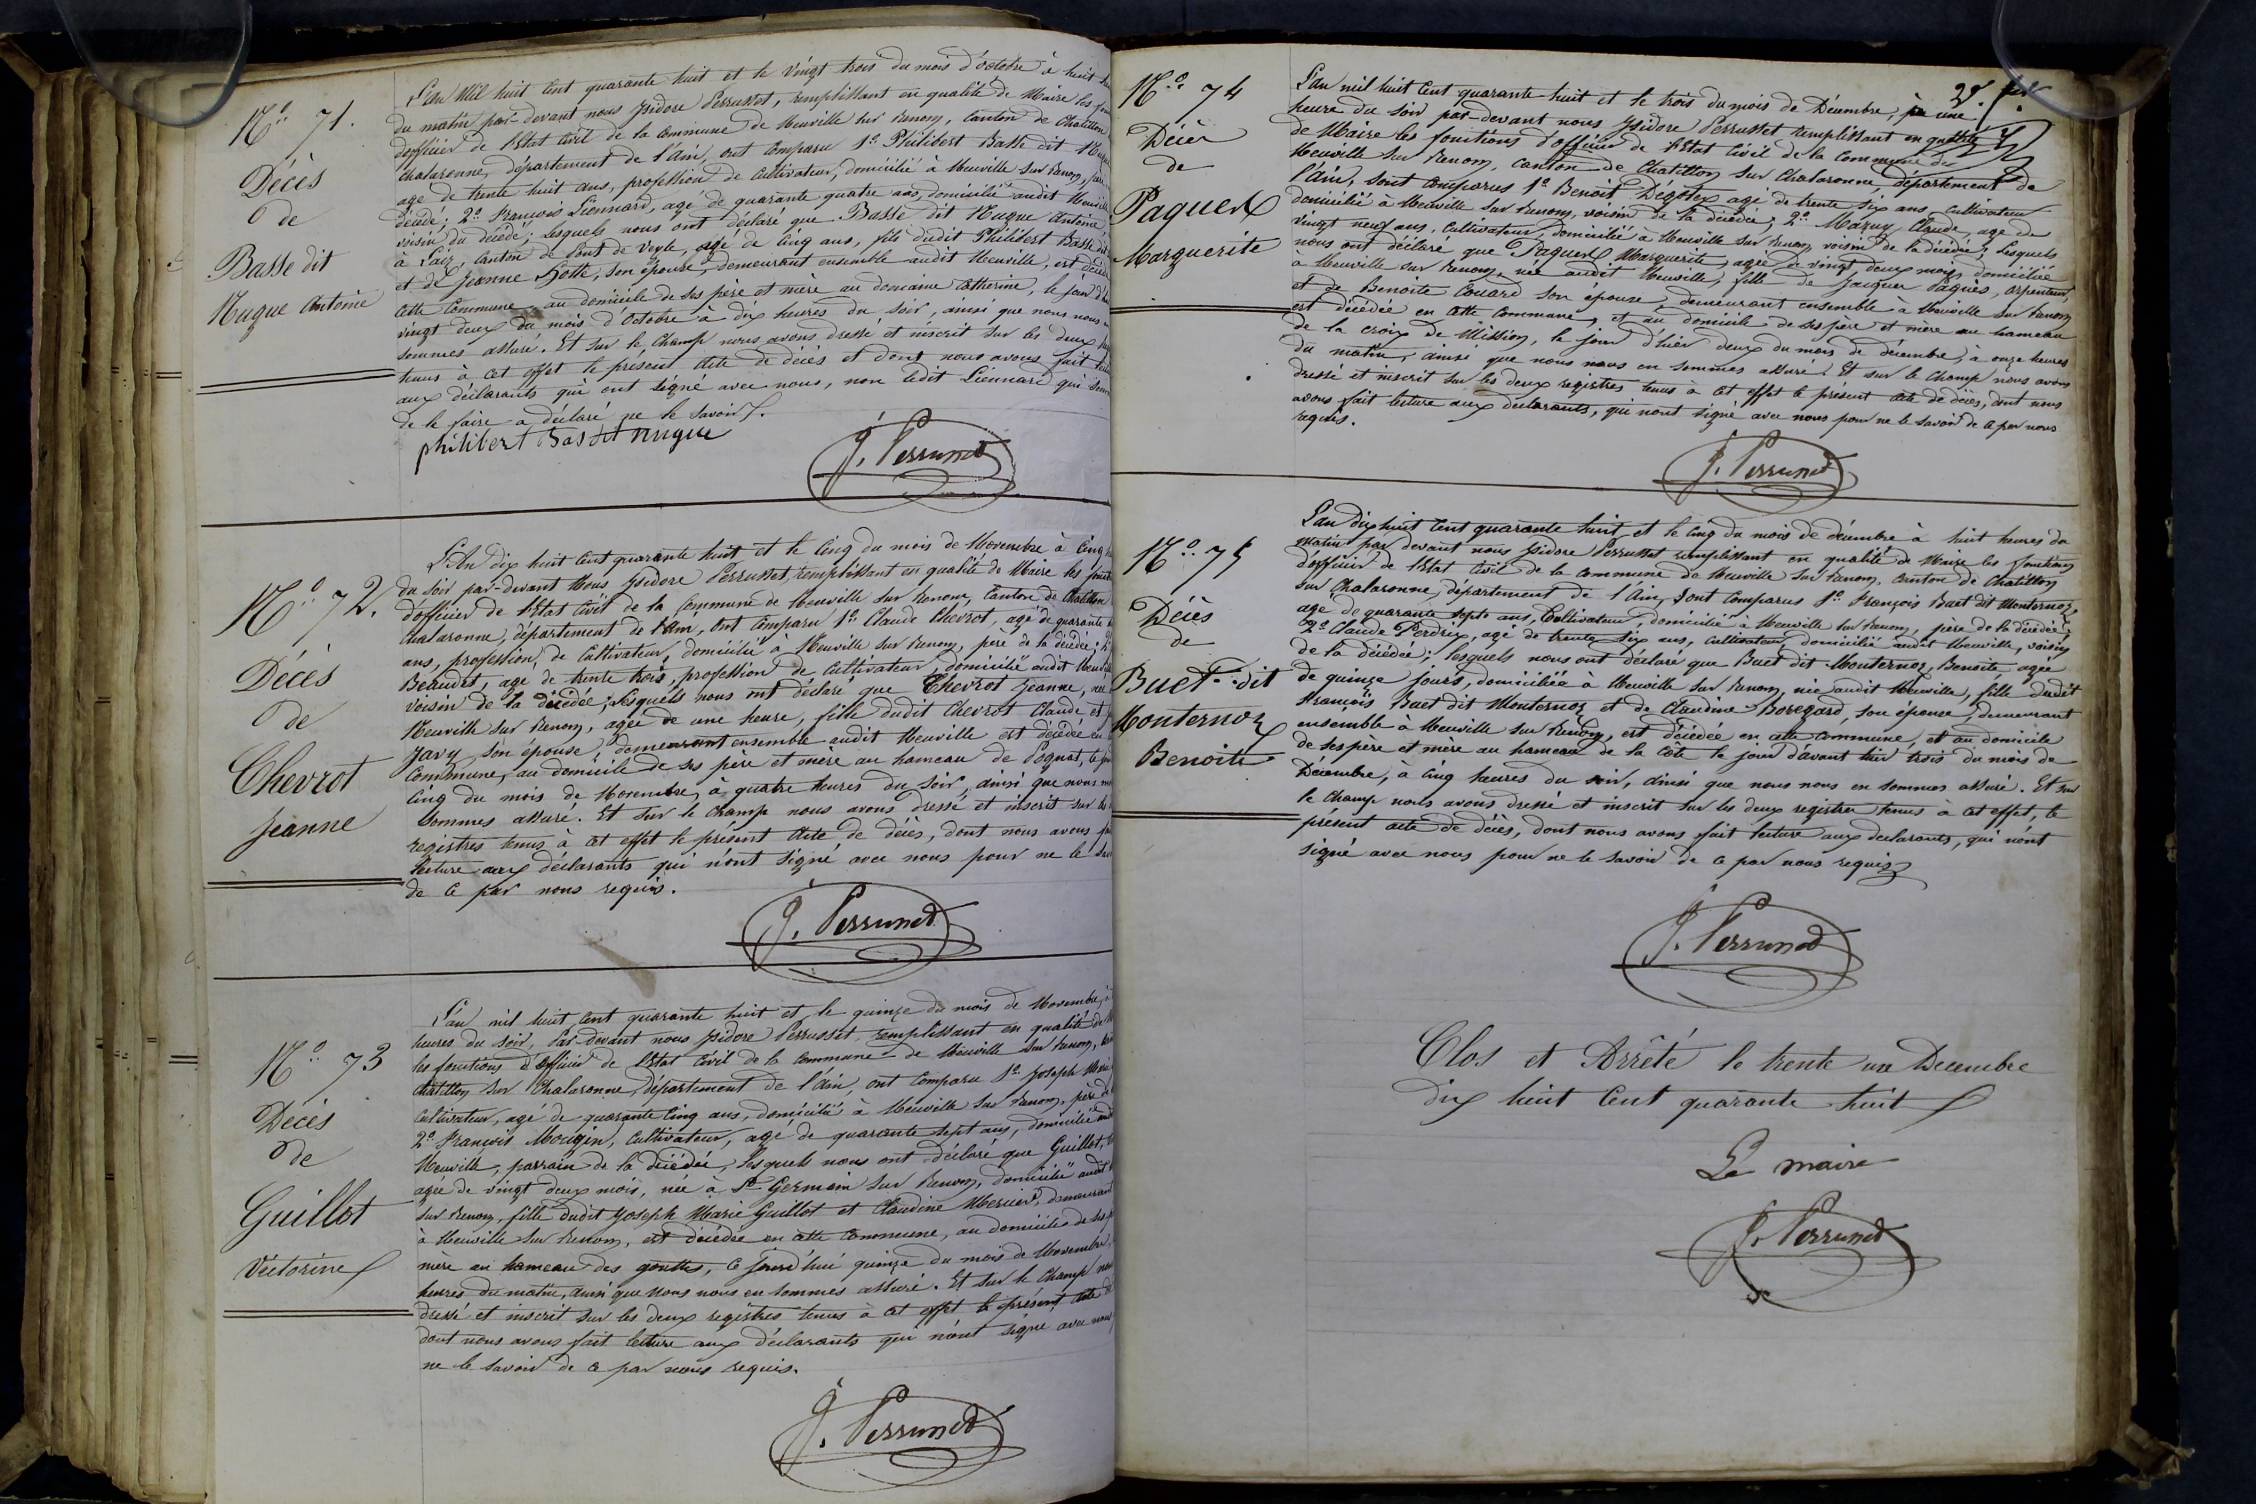 N.° 71.
Décès
de
Basse dit
Nugue Antoine
L'an Mil huit Cent quarante huit et le vingt trois du mois d'octobre à huit
du matin par-devant nous Isidore Perrusset, remplissant en qualité de Maire les
d'officier de l'Etat Civil de la Commune de Neuville sur Renom, Canton de Chatillon
Chalaronne, département de l'Ain, ont comparu 1° Philibert Basse dit
agé de trente huit ans, profession de Cultivateur, domicilié à Neuville sur Renom,
décédé; 2° François Liennard, agé de quarante quatre ans, domicilié audit Neuville
voisin du décédé; lesquels nous ont déclaré que Basse dit Nugue Antoine
à Laiz, Canton de Pont de Veyle, agé de Cinq ans, fils dudit Philibert Basse dit
et de Jeanne Hotte, son épouse, demeurant ensemble audit Neuville, est décédé
cette Commune, au domicile de ses père et mère au domaine Catherine, le jour d'hier
vingt deux du mois d'Octobre à dix heures du soir, ainsi que nous nous
sommes assuré. Et sur le Champ nous avons dressé et inscrit sur les deux
tenus à cet effet le présent acte de décès et dont nous avons fait
aux déclarants qui ont signé avec nous, non ledit Liennard qui
de le faire a déclaré ne le savoir.
philibert Bas dit nugue
J. Perrusset
N.° 72.
Décès
de
Chevrot
Jeanne
L'An dix huit Cent quarante huit et le Cinq du mois de Novembre à Cinq
du soir par-devant Nous Isidore Perrusset, remplissant en qualité de Maire les
d'officier de l'Etat Civil de la Commune de Neuville sur Renom, Canton de Chatillon
Chalaronne, département de l'Ain, Ont Comparu 1° Claude Chevrot, agé de quarante
ans, profession de Cultivateur, domicilié à Neuville sur Renom, père de la décédée;
Beaudet, agé de trente trois, profession de Cultivateur, domicilié audit Neuville
voisin de la décédée; lesquels nous ont déclaré que Chevrot Jeanne, née
Neuville sur Renom, agée de une heure, fille dudit Chevrot Claude et
Javy son épouse, demeurant ensemble audit Neuville est décédée en
Commune, au domicile de ses père et mère au hameau de Pognat, le
Cinq du mois de Novembre, à quatre heures du soir, ainsi que nous
sommes assuré. Et sur le champ nous avons dressé et inscrit sur les
registres tenus à cet effet le présent Acte de décès, dont nous avons
lecture aux déclarants qui n'ont signé avec nous pour ne le
de ce par nous requis.
J. Perrusset
N.° 73
Décès
de
Guillot
Victorine
L'an mil huit Cent quarante huit et le quinze du mois de Novembre,
heures du soir, Par-devant nous Isidore Perrusset, remplissant en qualité de
les fonctions d'Officier de l'Etat Civil de la Commune de Neuville sur Renom,
Chatillon sur Chalaronne, département de l'Ain, ont comparu 1° Joseph Marie
Cultivateur, agé de quarante Cinq ans, domicilié à Neuville sur Renom, père de
2° François Mougin, Cultivateur, agé de quarante sept ans, domicilié
Neuville, parrain de la décédée, lesquels nous ont déclaré que Guillot,
agée de vingt deux mois, née à St Germain sur Renom, domicilié audit
sur Renom, fille dudit Joseph Marie Guillot et Claudine Mercier, demeurant
à Neuville sur Renom, est décédée en cette Commune, au domicile de ses
mère au hameau des gouttes, ce jourd'hui quinze du mois de Novembre,
heures du matin, ainsi que Nous nous en sommes assuré. Et sur le Champ
dressé et inscrit sur les deux registres tenus à cet effet le présent acte
dont nous avons fait lecture aux déclarants qui n'ont signé avec nous
ne le savoir de ce par nous requis.
J. Perrusset
25.
N.° 74
Décès
de
Paquer
Marguerite
L'an mil huit Cent quarante huit et le trois du mois de Décembre, à une
heure du soir par-devant nous Isidore Perrusset remplissant en qualité
de Maire les fonctions d'officier de l'Etat Civil de la Commune de
Neuville sur Renom, Canton de Chatillon sur Chalaronne, département de
l'Ain, sont comparus 1° Benoit Dégotex agé de trente six ans, cultivateur
domicilié à Neuville sur Renom, voisin de la décédée; 2° Mazuy Claude, agé de
vingt neuf ans, Cultivateur, domicilié à Neuville sur Renom voisin de la décédée; lesquels
nous ont déclaré que Paquer Marguerite, agée de vingt deux mois domiciliée
à Neuville sur Renom, née audit Neuville, fille de Jacques Pâquer, arpenteur,
et de Benoite Couard son épouse, demeurant ensemble à Neuville sur Renom
est décédée en cette Commune, et au domicile de ses père et mère au hameau
de la croix de Mission, le jour d'hier deux du mois de décembre, à onze heures
du matin, ainsi que nous nous en sommes assuré. Et sur le Champ nous avons
dressé et inscrit sur les deux registres tenus à cet effet le présent acte de décès, dont nous
avons fait lecture aux déclarants, qui n'ont signé avec nous pour ne le savoir de ce par nous
requis.
J. Perrusset
N.° 75
Décès
de
Buet dit
Monternoz
Benoite
L'an dix huit Cent quarante huit et le Cinq du mois de décembre à huit heures du
matin par devant nous Isidore Perrusset remplissant en qualité de Maire les fonctions
d'officier de l'Etat Civil de la Commune de Neuville sur Renom, Canton de Chatillon
sur Chalaronne, département de l'Ain, Sont Comparus 1° François Buet dit Monternoz,
agé de quarante sept ans, Cultivateur, domicilié à Neuville sur Renom, père de la décédée;
2° Claude Perdrix, agé de trente six ans, cultivateur, domicilié audit Neuville, voisin
de la décédée; lesquels nous ont déclaré que Buet dit Monternoz, Benoite, agée
de quinze jours, domiciliée à Neuville sur Renom, née audit Neuville, fille dudit
François Buet dit Monternoz et de Claudine Boregard, son épouse, demeurant
ensemble à Neuville sur Renom, est décédée en cette Commune, et au domicile
de ses père et mère au hameau de la Côte le jour d'avant hier trois du mois de
Décembre, à Cinq heures du soir, ainsi que nous nous en sommes assuré. Et sur
le Champ nous avons dressé et inscrit sur les deux registres tenus à cet effet, le
présent acte de décès, dont nous avons fait lecture aux déclarants, qui n'ont
signé avec nous pour ne le savoir de ce par nous requis
J. Perrusset
Clos et Arrêté le trente un Decembre
Dix huit Cent quarante huit
Le maire
J. Perrusset